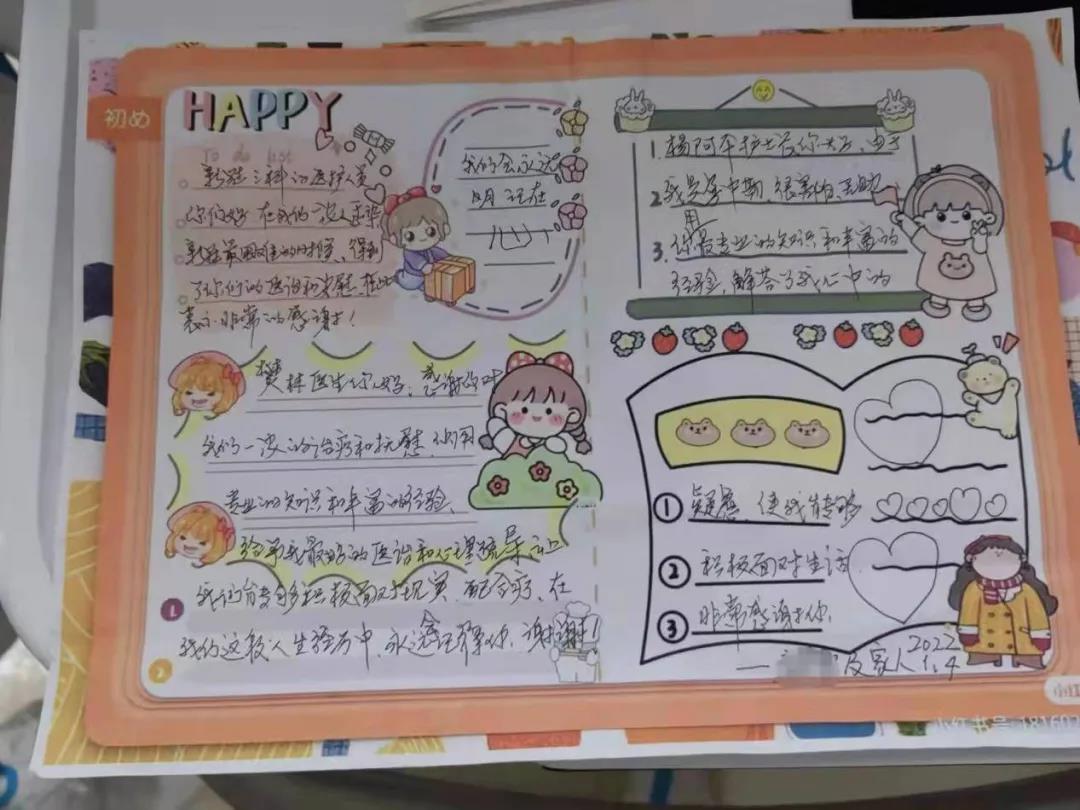 初め
HAPPY
To do list
乳腺三科的医护人员
你们好 在我们一没人患
乳腺最困难的时候、得到
了你们的医治和安慰、在此
表示非常的感谢！
我们会永远
记在
心
樊林医生你好：感谢你对
我们一次的治疗和抚慰、你用
专业的知识和丰富的经验、
给予我最好的医治和心理疏导
我们能够积极面对现实、配合、在
我的这段人生经历中、永远会记得你、谢谢！
1
2
1. 杨阿 护士长你好、由于
2. 我是孕中期、很害怕、无助
用
3. 你最专业的知识和丰富的
经验、解答了我心中的
① 疑惑、使我能够
② 积极面对生活
③ 非常感谢你、
及家人 2022
1.4
小红
小红书号:18160